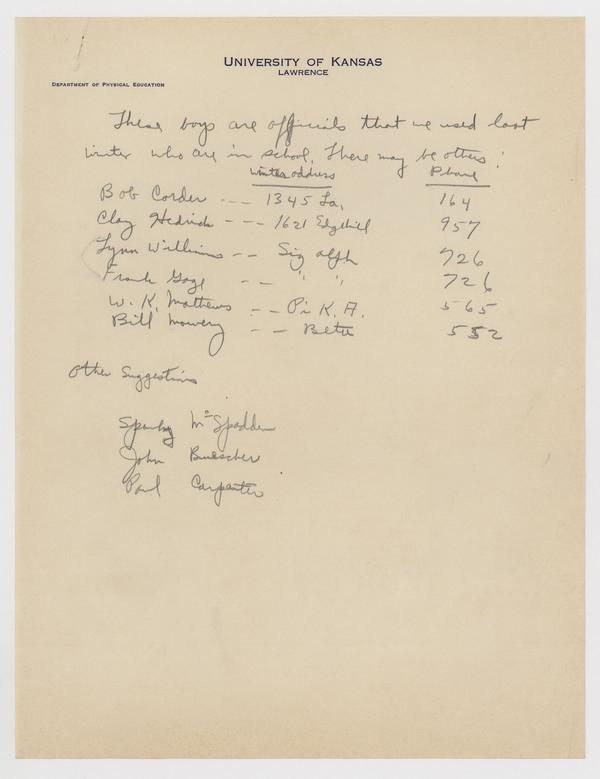 UNIVERSITY OF KANSAS
LAWRENCE
DEPARTMENT OF PHYSICAL EDUCATION
These boys are officials that we used last
winter who are in school. There may be others!
Winter address Phone
Bob Corder --- 1345 La. 164
Clay Hedrick --- 1621 Edgehill 957
Lynn Williams -- Sig alph 726
Frank Gage -- " " 726
W. K. Mathews -- Pi K. A. 565
Bill Mowery -- Beta 552
Other Suggestions
Sparky McSpadden
John Buescher
Paul Carpenter